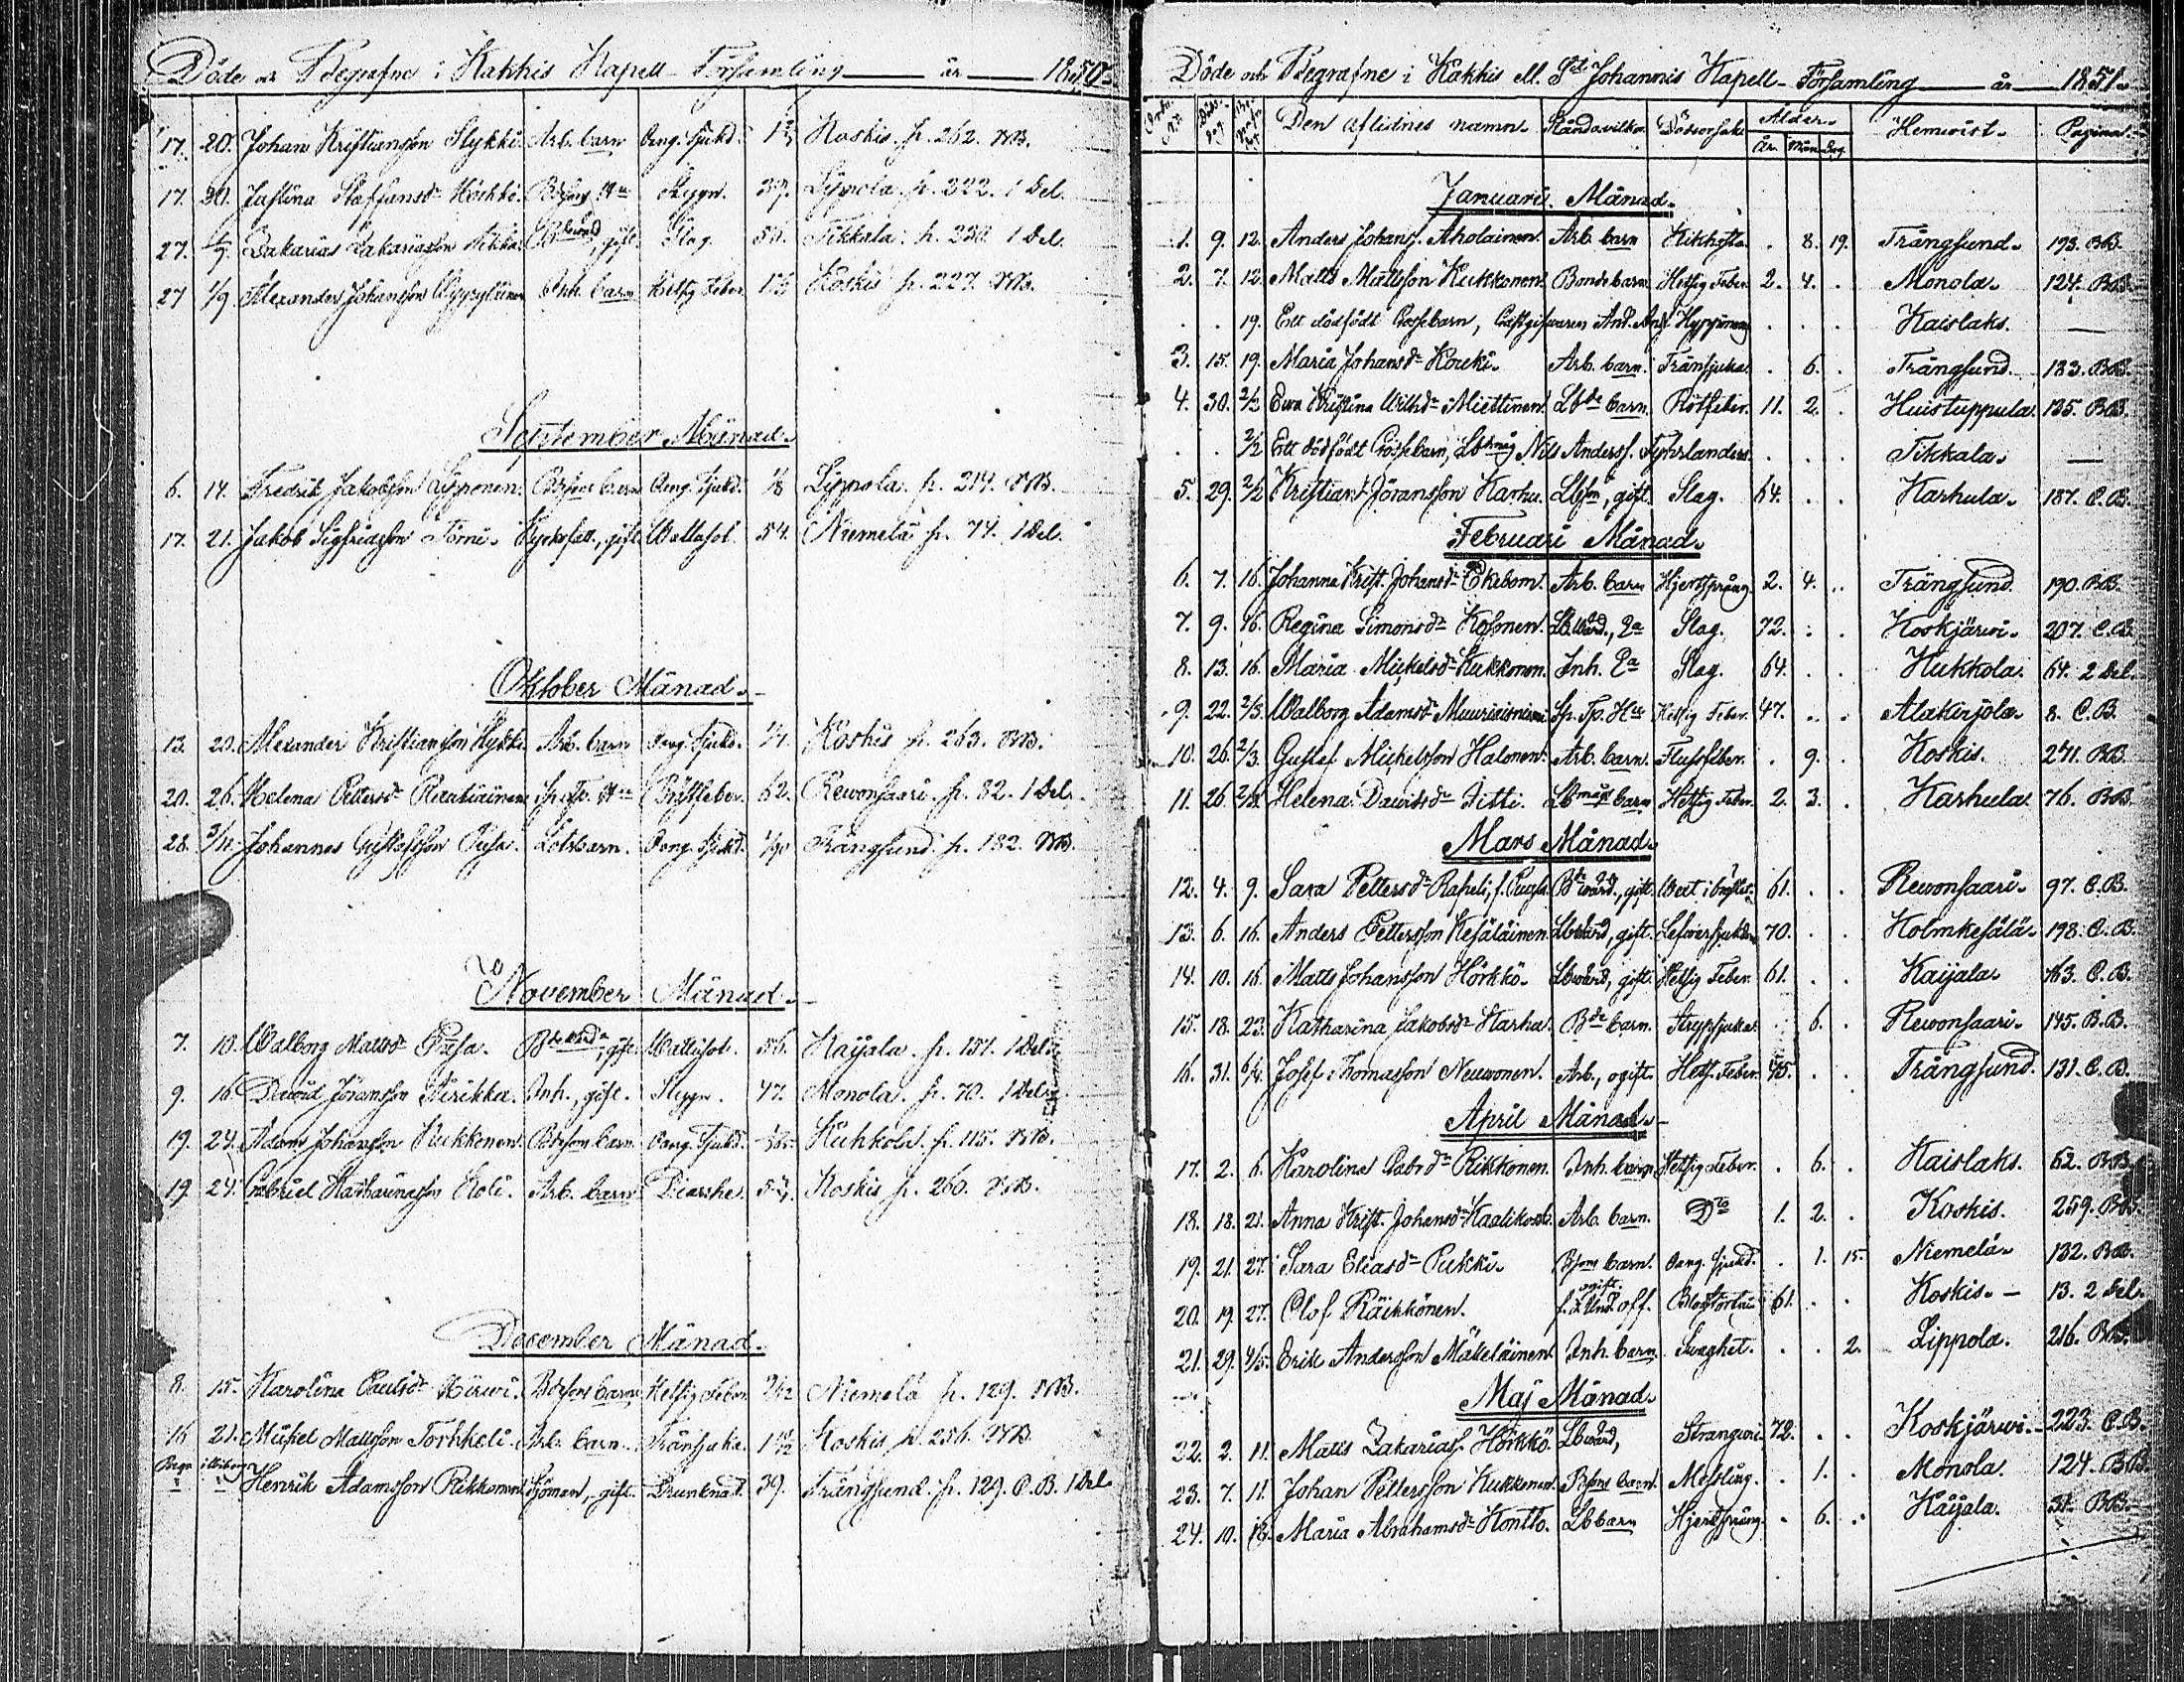 Döde och Begrafne i Kakkis Kapell-Församling år 1850.
17. 20. Johan Kristiansson Arb. barn Oang. sjukd. Koskis p. 262. BB.
17. 30. Justina Staffansdr 39. Lippola p. 222. 1 Del.
27. 1/9. Zakarias Zakariasson gift Slag. 50. Tikkala p. 230. 1 Del.
27 1/9. Alexander Johansson Inh. barn Hetsig Feber Koskis p. 227. BB.
September Månad.
6. 14. Fredrik Jakobsson Lipponen. barn Oang. sjukd. Lippola. p. 214. BB.
17. 21. Jakob Sigfridsson Törni. gift Wattusot. 54. Niemelä p. 74. 1 Del.
Oktober Månad.
13. 20. Alexander Kristiansson Arb. barn Oang. sjukd. Koskis p. 263. BB.
20. 26. Helena Pettersdr Rautiainen Sp. Tp. Hu Bröstfeber. 62. Rewonsaari. p. 82. 1 Del.
28. 3/11. Johannes Gustafsson Pusa. Lotsbarn. Oang. sjukd. Trångsund. p. 182. BB.
November Månad.
7. 10. Walborg Mattsdr Pusa. gift Wattusot. 56. Kaijala. p. 151. 1 Del.
9. 16. David Jöransson Inh., gift. Stygn. 47. Monola. p. 70. 1 Del.
19. 24. Adam Johansson Kukkonen. barn Oang. sjukd. Kuhkola. p. 115. BB.
19. 24. Gabriel Arb. barn Diarrhe. Koskis p. 260. BB.
December Månad.
8. 15. Karolina Paulsdr Hirwi. barn Hetsig Feber. Niemelä p. 129. BB.
16 21. Mickel Mattsson Torkkeli. Arb. barn. Tränsjuka. Koskis p. 256. BB.
Begr. i Wiborg Henrik Adamsson Rikkonen Sjöman, gift. Drunknat. 39. Trångsund. p. 129. C.B. 1 Del
Döde och Begrafne i Kakkis ell. St Johannis Kapell-Församling år 1851.
Ordn. No. Döds-dag. Begrafn. dag Den aflidnes namn. Ståndsvilkor. Dödsorsak. Ålder. Hemvist. Pagina.
År. Mån. Dag.
Januari Månad.
1. 9. 12. Anders Johanss. Aholainen. Arb. barn Kikhosta . 8. 19. Trångsund. 193. BB.
2. 7. 12. Matts Mattsson Kukkonen. Bondebarn Hetsig Feber. 2. 4. . Monola. 124. BB.
. . 19. Ett dödfödt Gossebarn, Gästgifwaren And. Hypponens . . . Kaislaks. —
3. 15. 19. Maria Johansdr Kouki. Arb. barn. Tränsjuka. . 6. . Trångsund. 183. BB.
4. 30. 2/2 Ewa Kristina Wilhdr Miettinen. Lbde barn. Rötfeber. 11. 2. . Huistuppula. 135. BB.
. . 2/2 Ett dödfödt Gossebarn, Nils Anderss. Fyhrlanders. . . . Tikkala. —
5. 29. 2/2 Kristian Jöransson Karhu. gift. Slag. 64. . . Karhula. 187. C.B.
Februari Månad.
6. 7. 16. Johanna Krist. Johansdr Ekebom. Arb. barn Hjertsprång. 2. 4. .. Trångsund. 190. BB.
7. 9. 16. Regina Simonsdr Kosonen. Ea Slag. 72. . . Koskjärwi. 207. C.B.
8. 13. 16. Maria Mickelsdr Kukkonen. Inh. Ea Slag. 64. . . Kukkola. 64. 2 Del.
9. 22. 2/3. Walborg Adamsdr Sp. Tp. Hu Hetsig Feber. 47. .. . Alakirjola. 8. C.B.
10. 26. 2/3. Gustaf Mickelsson Halonen. Arb. barn. Flussfeber. . 9. . Koskis. 241. BB.
11. 26. 2/3. Helena Davidsdr Titti. barn Hetsig Feber. 2. 3. . Karhula. 76. BB.
Mars Månad.
12. 4. 9. Sara Pettersdr Rapeli, f. gift. 61. . . Rewonsaari. 97. C.B.
13. 6. 16. Anders Pettersson Kesäläinen. Lbwärd, gift. Lefwersjukdom 70. . . Holmkesälä. 198. C.B.
14. 10. 16. Matts Johansson Hörkkö. Lbwärd, gift. Hetsig Feber. 61. . . Kaijala. 163. C.B.
15. 18. 23. Katharina Jakobsdr Karha. Bde barn. Strypsjuka. . 6. . Rewonsaari. 145. B.B.
16. 31. 6/4. Josef Thomasson Neuwonen. Arb., ogift. Hets. Feber. 45. . . Trångsund. 131. C.B.
April Månad.
17. 2. 6. Karolina Gabrdr Rikkonen. Inh. barn Hetsig Feber. . 6. . Kaislaks. 62. BB.
18. 18. 21. Anna Krist. Johansdr Arb. barn. Do 1. 2. . Koskis. 259. BB.
19. 21. 27. Sara Eliasdr Pukki. barn. Oang. sjukd. . 1. 15. Niemelä. 132. BB.
20. 19. 27. Olof Räikkönen. f. d. Und. off. ogift. Blodstörtn. 61. . . Koskis. — 13. 2 Del.
21. 29. 4/5. Erik Andersson Mäkeläinen. Inh. barn. Swaghet. . . 2. Lippola. 216. BB.
Maj Månad.
22. 2. 11. Matts Zakariass. Hörkkö. Lbwärd, Stranguri 72. . . Koskjärwi. 223. C.B.
23. 7. 11. Johan Pettersson Kukkonen. barn. Messling. . 1. . Monola. 124. BB.
24. 10. 18. Maria Abrahamsdr Kontto. Lbbarn Hjertsprång. . 6. . Kaijala. 31. BB.